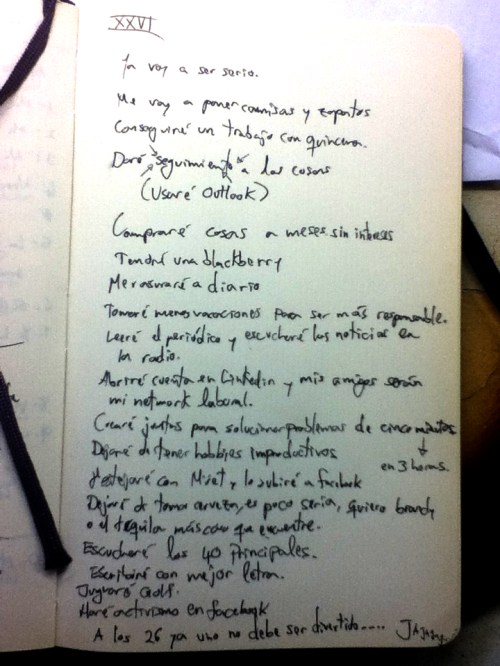 XXVI
Ya voy a ser serio.
Me voy a poner camisas y zapatos
Conseguiré un trabajo con quincena.
Daré seguimiento a las cosas
(Usaré Outlook)
Compraré cosas a meses sin intereses
Tendré una blackberry
Me rasuraré a diario
Tomaré menos vacaciones para ser más responsable.
Leeré el periódico y escucharé las noticias en
la radio.
Abriré cuenta en Linkedin y mis amigos serán
mi network laboral.
Crearé juntas para solucionar problemas de cinco minutos
en 3 horas.
Dejaré de tener hobbies improductivos
Festejaré con Moët y lo subiré a facebook
Dejaré de tomar cerveza, es poco seria, quiero brandy
o el tequila más caro que encuentre.
Escucharé los 40 Principales.
Escribiré con mejor letra.
Jugaré Golf.
Haré activismo en facebook
A los 26 ya uno no debe ser divertido.....